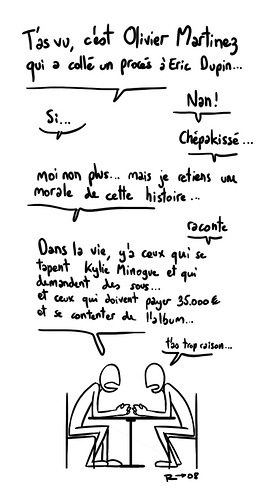 T'as vu, c'est Olivier Martinez
qui a collé un procès à Eric Dupin...
Nan!
Si...
Chépakissé...
moi non plus... mais je retiens une
morale de cette histoire...
raconte
Dans la vie, y'a ceux qui se
tapent Kylie Minogue et qui
demandent des sous...
et ceux qui doivent payer 35.000€
et se contenter de l'album...
t'as trop raison...
R→08